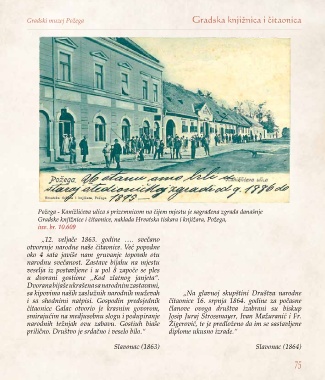 Gradski muzej Požega
Gradska knjižnica i čitaonica
Požega,
Kanižlićeva ulica
Požega - Kanižlićeva ulica s prizemnicom na čijem mjestu je sagrađena zgrada današnje
Gradske knjižnice i čitaonice, naklada Hrvatska tiskara i knjižara, Požega,
inv. br. 10.609
„12. veljače 1863. godine .... svečano
otvorenje narodne naše čitaonice. Već popodne
oko 4 sata javiše nam gruvanje topovah otu
narodnu svečanost. Zastave bijahu na mjestu
veselja iz postavljene i u pol 8 započe se ples
u dvorani gostione „Kod zlatnog janjeta".
Dvorana bijaše ukrašena sa narodnimi zastavami,
sa kipovima naših zaslužnih narodnih muževah
i sa shodnimi natpisi. Gospodin predsjednik
čitaonice Galac otvorio je krasnim govorom,
smirajućim na medjusobnu slogu i podupiranje
narodnih težnjah ovu zabavu. Gostiuh biaše
prilično. Društvo je srdačno i veselo bilo."
Slavonac (1863)
„Na glavnoj skupštini Društva narodne
čitaonice 16. srpnja 1864. godine za počasne
članove ovoga društva izabrani su biskup
Josip Juraj Strossmayer, Ivan Mažuranić i Fr.
Žigerović, te je predloženo da im se sastavljene
diplome ukusno izrade."
Slavonac (1864)
75